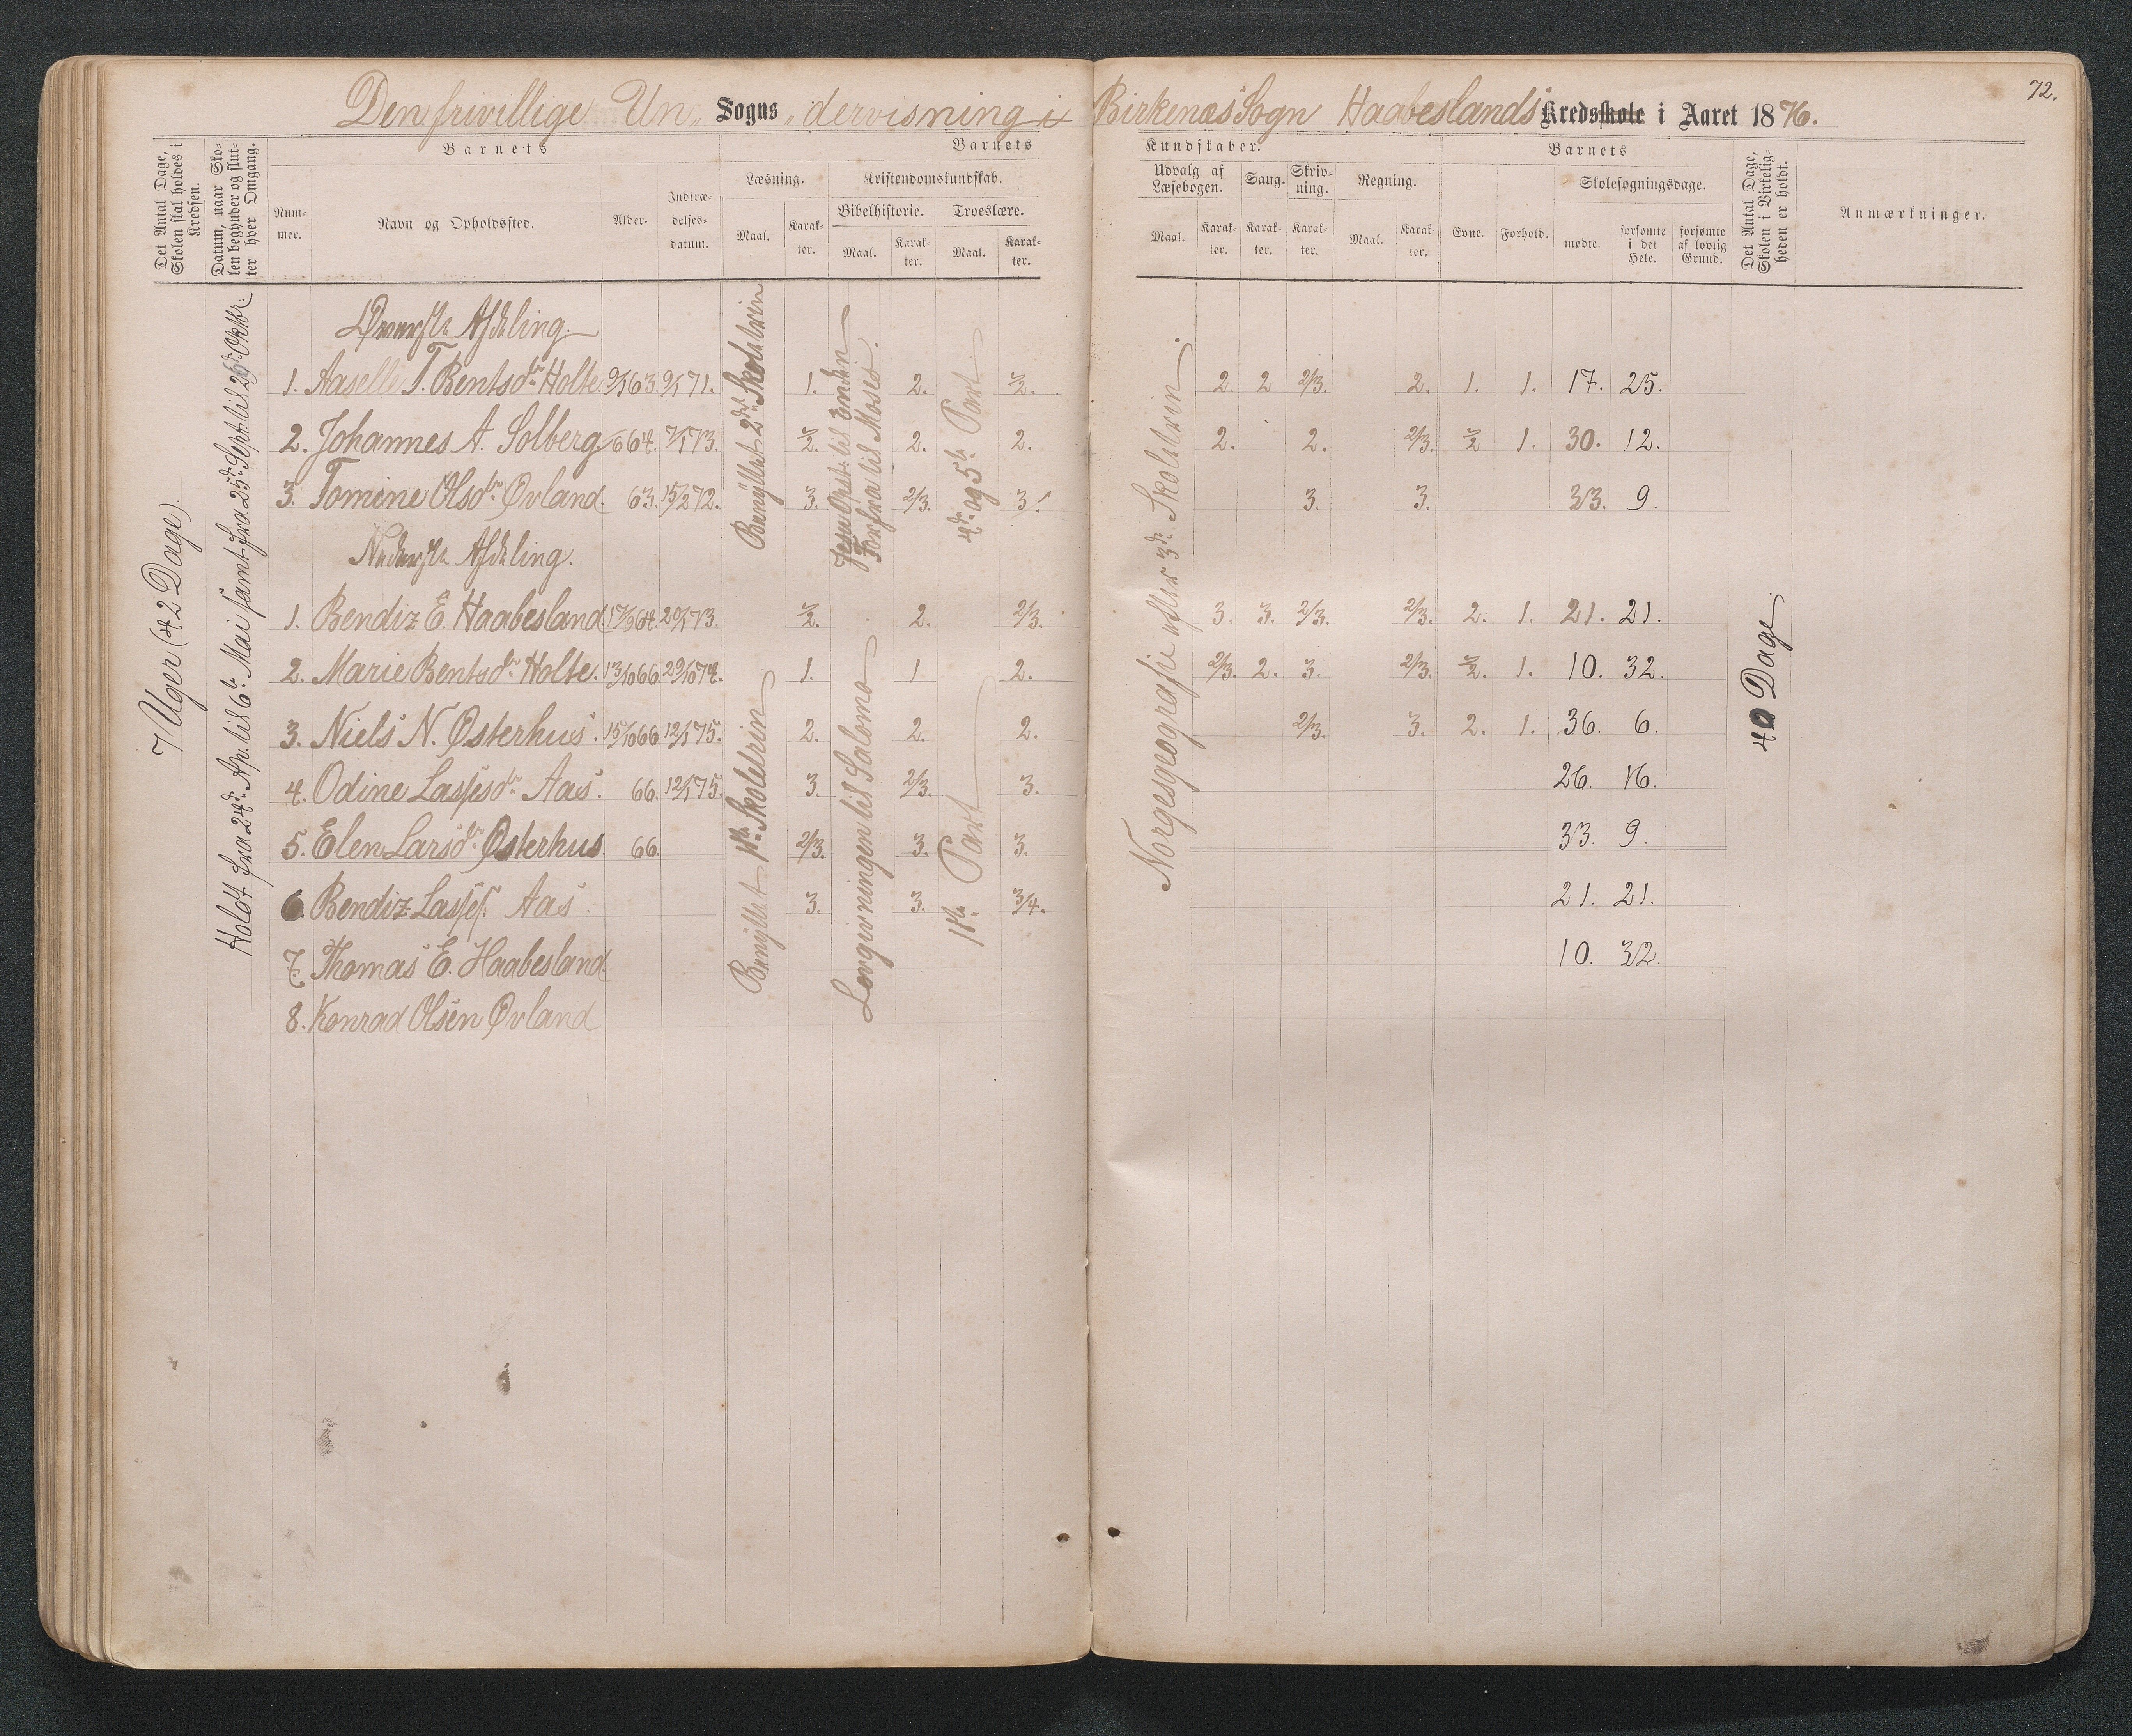 72.
Den frivillige Un„ Sogns „dervisning i Birkenæs Sogn Haabeslands Kredsskole i Aaret 1876.
Det Antal Dage, Skolen skal holdes i Kredsen.
Datum, naar Skolen begynder og slutter hver Omgang.
Barnets
Nummer.
Navn og Opholdssted.
Alder.
Indtrædelsesdatum.
Barnets
Læsning.
Maal.
Karakter.
Kristendomskundskab.
Bibelhistorie.
Maal.
Karakter.
Troeslære.
Maal.
Karakter.
Kundskaber.
Udvalg af Læsebogen.
Maal.
Karakter.
Sang.
Karakter.
Skrivning.
Karakter.
Regning.
Maal.
Karakter.
Barnets
Evne.
Forhold.
Skolesøgningsdage.
mødte.
forsømte i det Hele.
forsømte af lovlig Grund.
Det Antal Dage, Skolen i Virkeligheden er holdt.
Anmærkninger.
7 Uger (42 Dage).
Holdt fra 24de Ap. til 6te Mai samt fra 25de Sept. til 26de Oktbr.
Øverste Afdeling.
1. Aaselle T. Bentsdtr Holte. 9/1 63. 9/1 71. 1. 2. ½. 2. 2 2/3. 2. 1. 1. 17. 25.
2. Johannes A. Solberg. /6 64. 7/1 73. ½. 2. 2. 2. 2. 2/3. ½ 1. 30. 12.
3. Tomine Olsdtr Øvland. 63. 15/2 72. 3. 2/3. 3. 3. 3. 33. 9.
Nederste Afdeling.
1. Bendiz E. Haabesland. 17/9 64. 20/1 73. ½. 2. 2/3. 3. 3. 2/3. 2/3. 2. 1. 21. 21.
2. Marie Bentsdtr Holte. 13/10 66. 29/10 74. 1. 1 2. 2/3. 2. 3. 2/3. ½. 1. 10. 32.
3. Niels N. Østerhus. 15/10 66. 12/1 75. 2. 2. 2. 2/3. 3. 2. 1. 36. 6.
4. Odine Lassesdtr Aas. 66. 12/1 75. 3. 2/3. 3. 26. 16.
5. Elen Larsdtr Østerhus. 66. 2/3. 3. 3. 33. 9.
6. Bendiz Lasses. Aas. 3. 3. 3/4. 21. 21.
7. Thomas E. Haabesland. 10. 32.
8. Konrad Olsen Øvland
Benyttet 2det Skoletrin
Jesu Opst. til Enden
Forfra til Moses.
4de og 5te Part
Benyttet 1ste Skoletrin
Lovgivningen til Salomo
1ste Part
Norgesgeografie efter 3die Skoletrin.
40 Dage